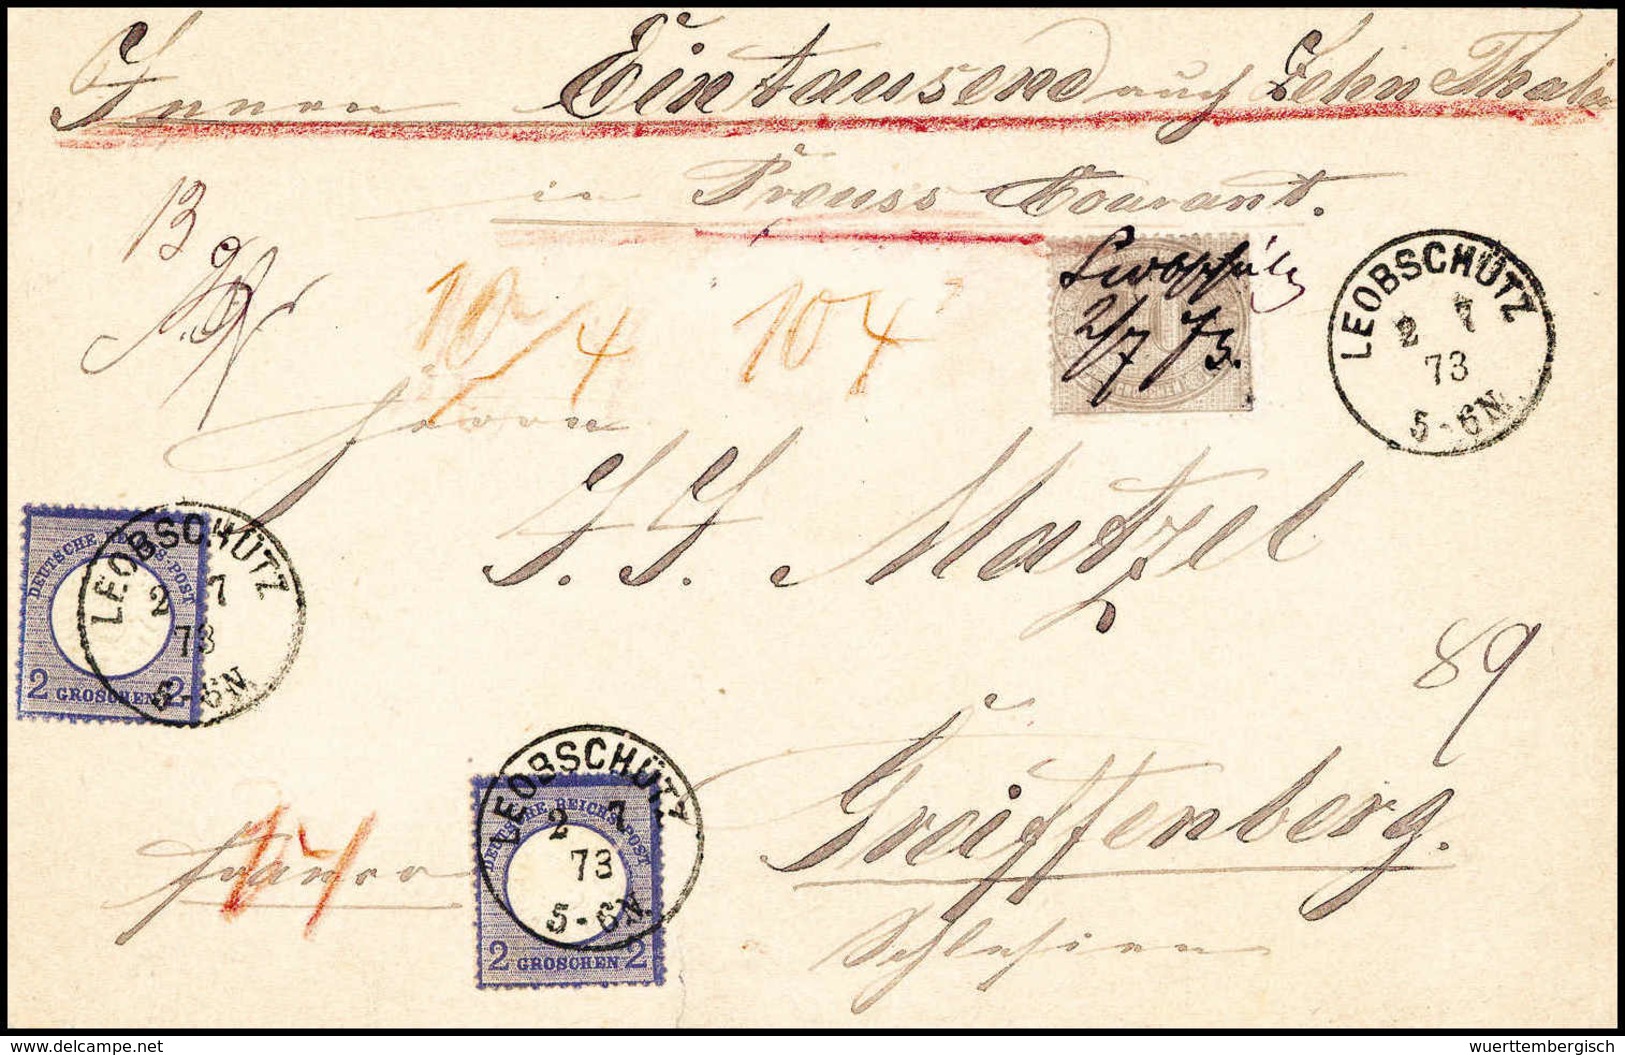 Innen Eintausend auch Zehn Thaler
in Preuss Courant.
13
10/4 10 4
Leobschütz
2/7 73.
LEOBSCHÜTZ
2 7
73
5-6N.
Herrn
J. J. Matzel
DEUTSCHE REICHS-POST
2 GROSCHEN 2
LEOBSCHÜTZ
2 7
73
5-6N.
89
Greiffenberg.
Schlesien
franco
DEUTSCHE REICHS-POST
2 GROSCHEN 2
LEOBSCHÜTZ
2 7
73
5-6N.
© www.delcampe.net
wuerttembergisch